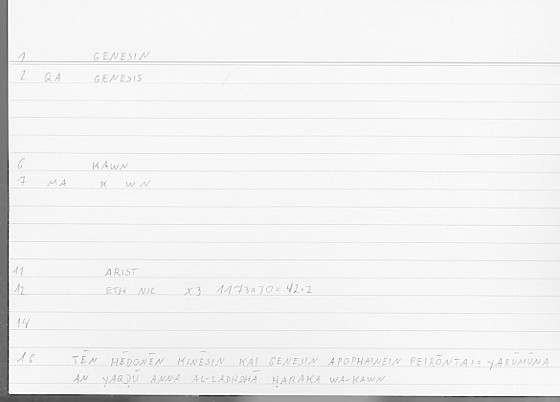 1 GENESIN
2 QA GENESIS
6 KAWN
7 MA K W N
11 ARIST
12 ETH NIC X3 1173a30 = 42.2
14
16 TĒN HĒDONĒN KINĒSIN KAI GENESIN APOPHAINEIN PEIRŌNTAI = YARŪMŪNA
AN YAQḌŪ ANNA AL-LADHDHĀ ḤARAKA WA-KAWN